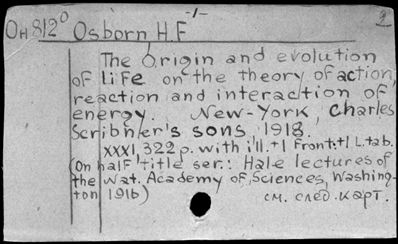 -1-
2
Он 812° Osborn H.F
The Origin and evolution
of life on the theory of action,
reaction and interaction of
energy. New-York, Charles
Scribner's sons 1918.
XXXI, 322 p. with ill.+1 Front.+1 L.tab.
(On half title ser.: Hale lectures of
the Nat. Academy of Sciences, Washing-
ton 1916)
см. след. карт.